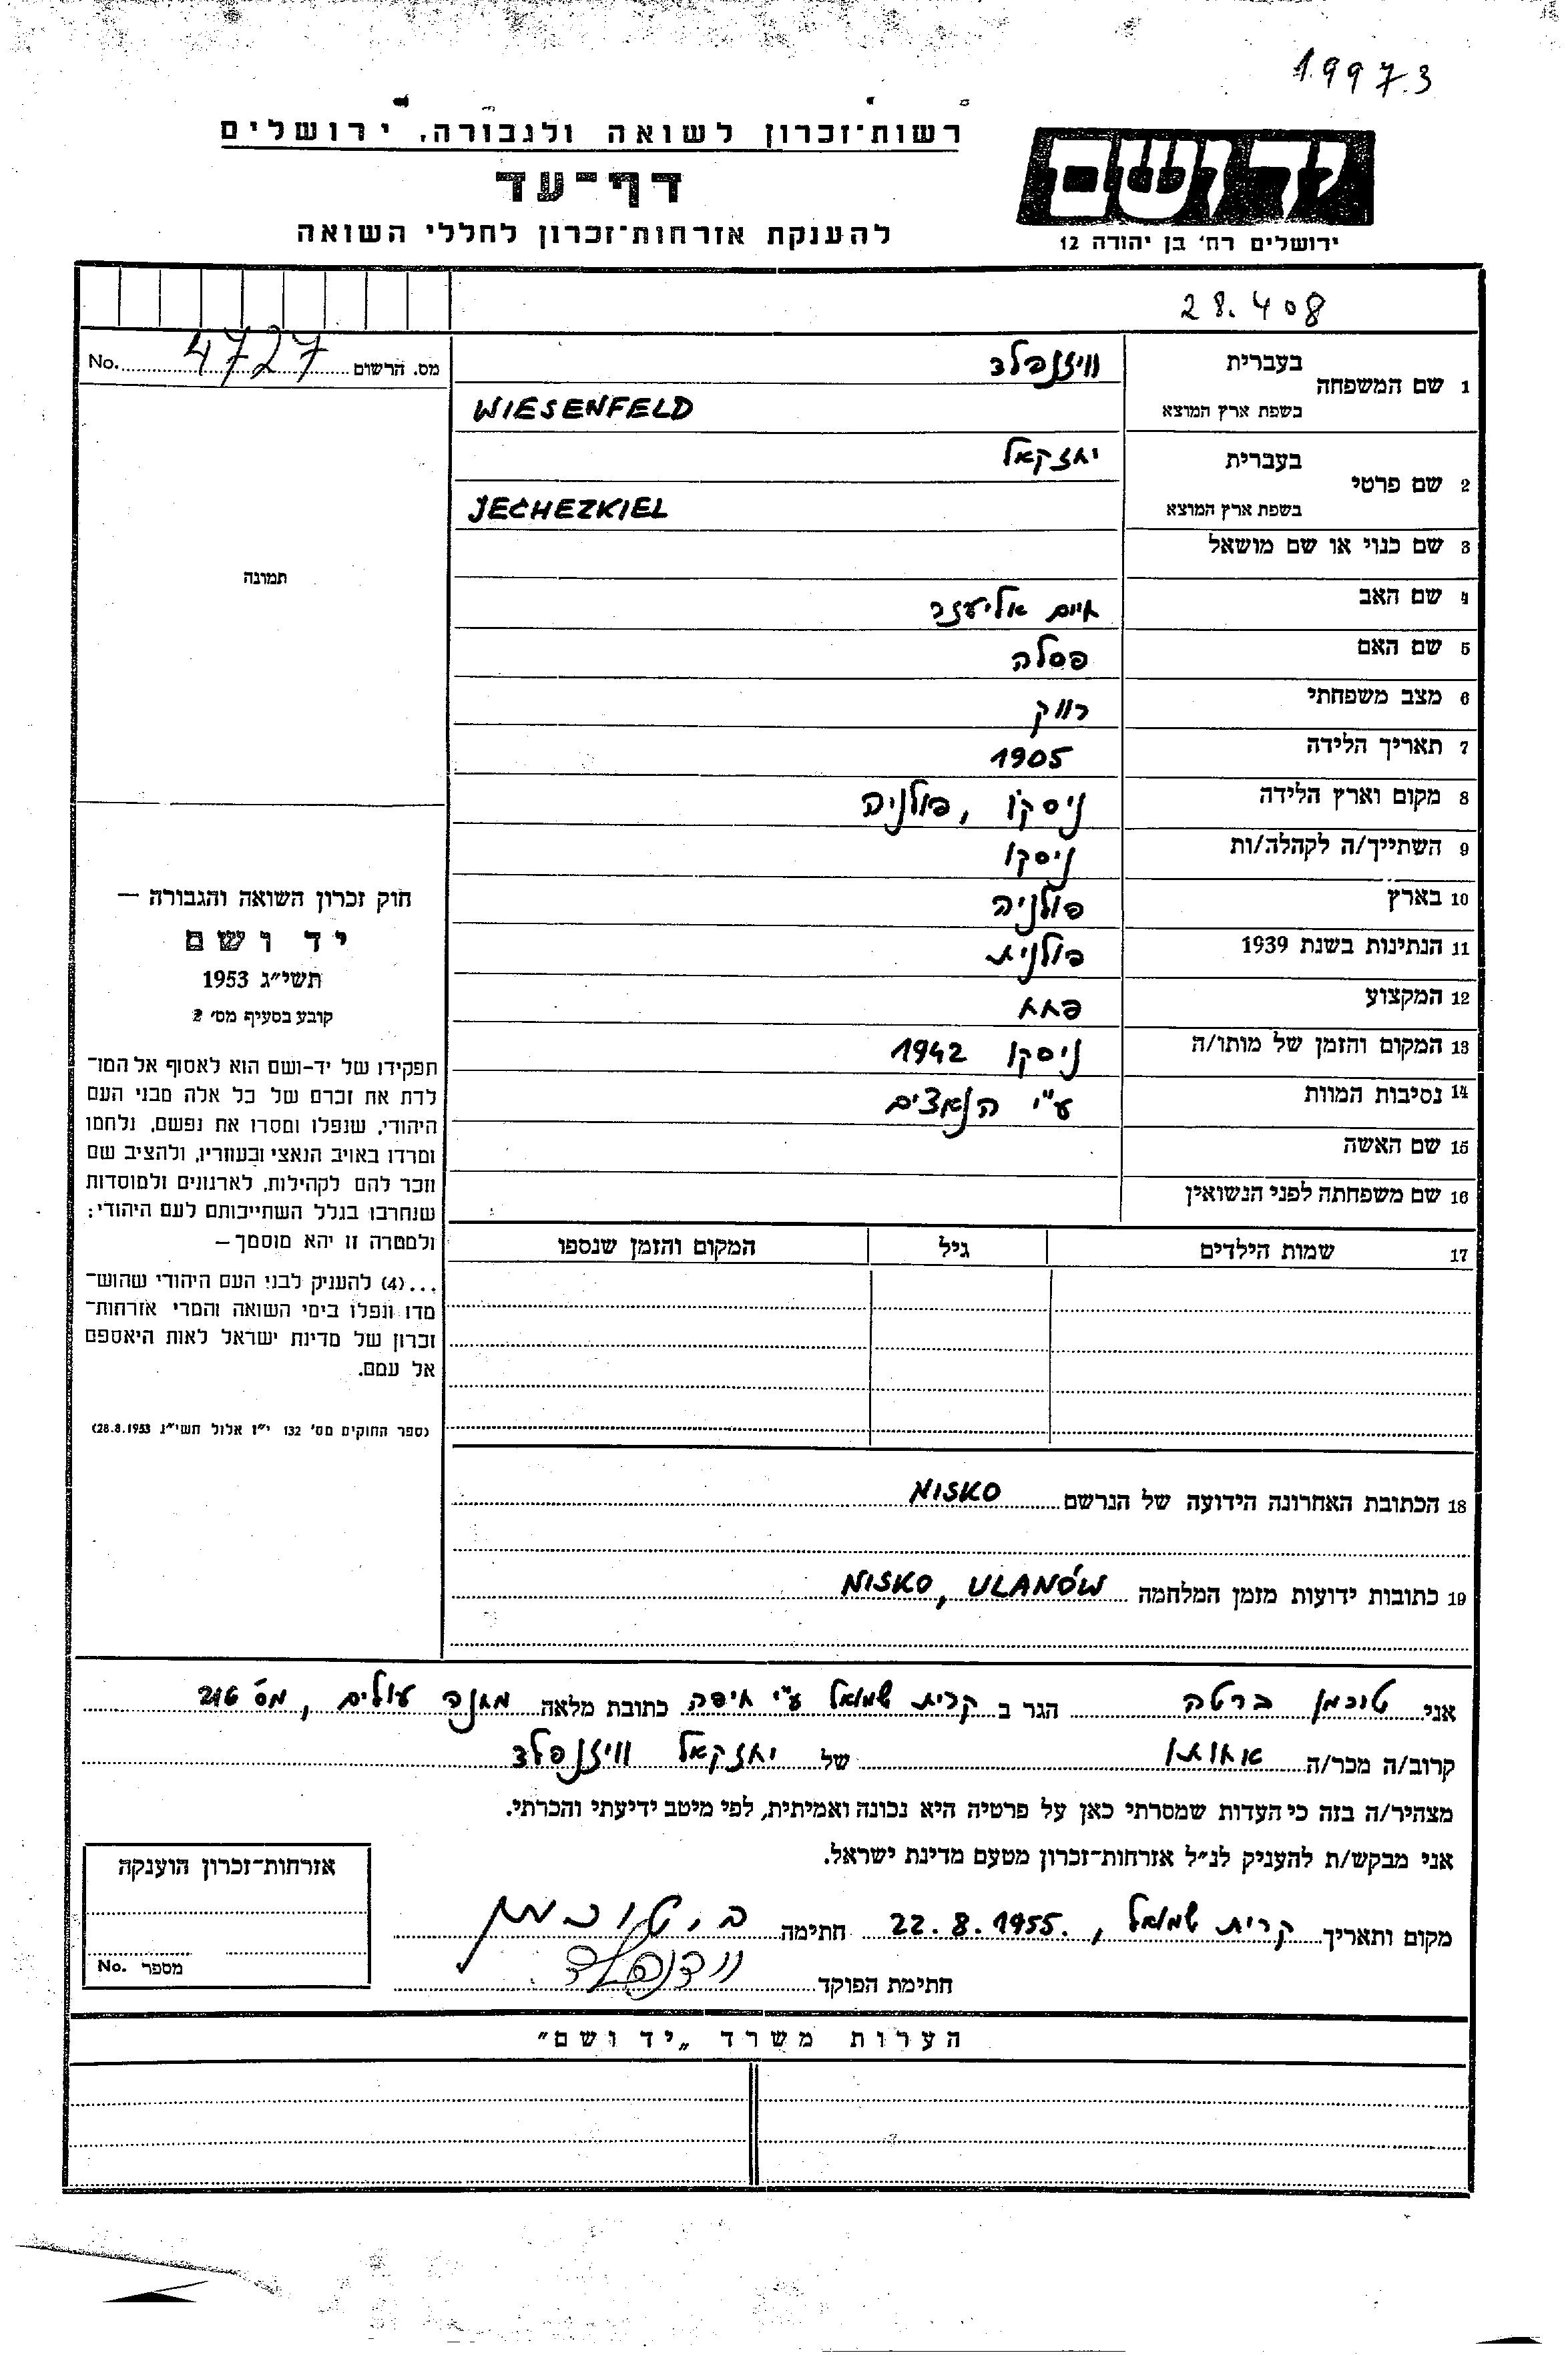 1.997.3
רשות־זכרון לשואה ולגבורה, ירושלים
דף־עד
להענקת אזרחות־זכרון לחללי השואה
יד ושם
ירושלים רח' בן יהודה 12
28.408
מס. הרשום 4727 No.
1 שם המשפחה
בעברית וויזנפלד
בשפת ארץ המוצא WIESENFELD
2 שם פרטי
בעברית יחזקאל
בשפת ארץ המוצא JECHEZKIEL
3 שם כנוי או שם מושאל
4 שם האב חיים אליעזר
5 שם האם פסלה
6 מצב משפחתי רווק
7 תאריך הלידה 1905
8 מקום וארץ הלידה ניסקו, פולניה
9 השתייך/ה לקהלה/ות ניסקו
10 בארץ פולניה
11 הנתינות בשנת 1939 פולנית
12 המקצוע פחח
13 המקום והזמן של מותו/ה ניסקו 1942
14 נסיבות המוות ע"י הנאצים
15 שם האשה
16 שם משפחתה לפני הנשואין
17 שמות הילדים גיל המקום והזמן שנספו
18 הכתובת האחרונה הידועה של הנרשם NISKO
19 כתובות ידועות מזמן המלחמה NISKO, ULANÓW
תמונה
חוק זכרון השואה והגבורה —
יד ושם
תשי"ג 1953
קובע בסעיף מס' 2
תפקידו של יד-ושם הוא לאסוף אל המו־
לדת את זכרם של כל אלה מבני העם
היהודי, שנפלו ומסרו את נפשם, נלחמו
ומרדו באויב הנאצי ובעוזריו, ולהציב שם
וזכר להם לקהילות, לארגונים ולמוסדות
שנחרבו בגלל השתייכותם לעם היהודי;
ולמטרה זו יהא מוסמך —
...(4) להעניק לבני העם היהודי שהוש־
מדו ונפלו בימי השואה והמרי אזרחות־
זכרון של מדינת ישראל לאות היאספם
אל עמם.
(ספר החוקים מס' 132 י"ז אלול תשי"ג 28.8.1953)
אני טוכמן ברטה הגר ב קרית שמואל ע"י חיפה כתובת מלאה מחנה עולים, מס' 216
קרוב/ה מכר/ה אחותו של יחזקאל וויזנפלד
מצהיר/ה בזה כי העדות שמסרתי כאן על פרטיה היא נכונה ואמיתית, לפי מיטב ידיעתי והכרתי.
אני מבקש/ת להעניק לנ"ל אזרחות־זכרון מטעם מדינת ישראל.
מקום ותאריך קרית שמואל, 22.8.1955. חתימה ב. טוכמן
חתימת הפוקד
אזרחות־זכרון הוענקה
מספר No.
הערות משרד „יד ושם"